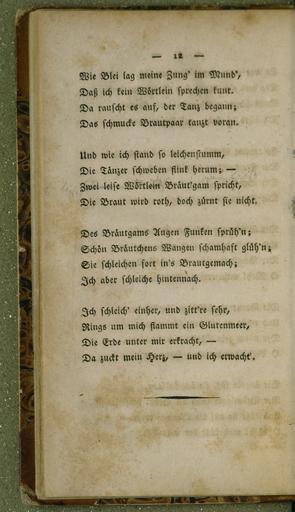 — 12 —
Wie Blei lag meine Zung' im Mund',
Daß ich kein Wörtlein sprechen kunt.
Da rauscht es auf, der Tanz begann;
Das schmucke Brautpaar tanzt voran.
Und wie ich stand so leichenstumm,
Die Tänzer schweben flink herum; —
Zwei leise Wörtlein Bräut'gam spricht,
Die Braut wird roth, doch zürnt sie nicht.
Des Bräutgams Augen Funken sprüh'n;
Schön Bräutchens Wangen schamhaft glüh'n;
Sie schleichen fort in's Brautgemach;
Ich aber schleiche hintennach.
Ich schleich' einher, und zitt're sehr,
Rings um mich flammt ein Glutenmeer,
Die Erde unter mir erkracht, —
Da zuckt mein Herz, — und ich erwacht'.